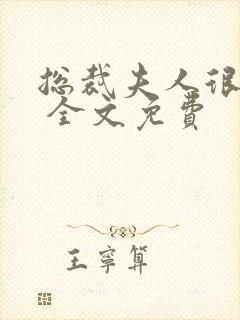 总裁夫人很
全文免费
王宁算